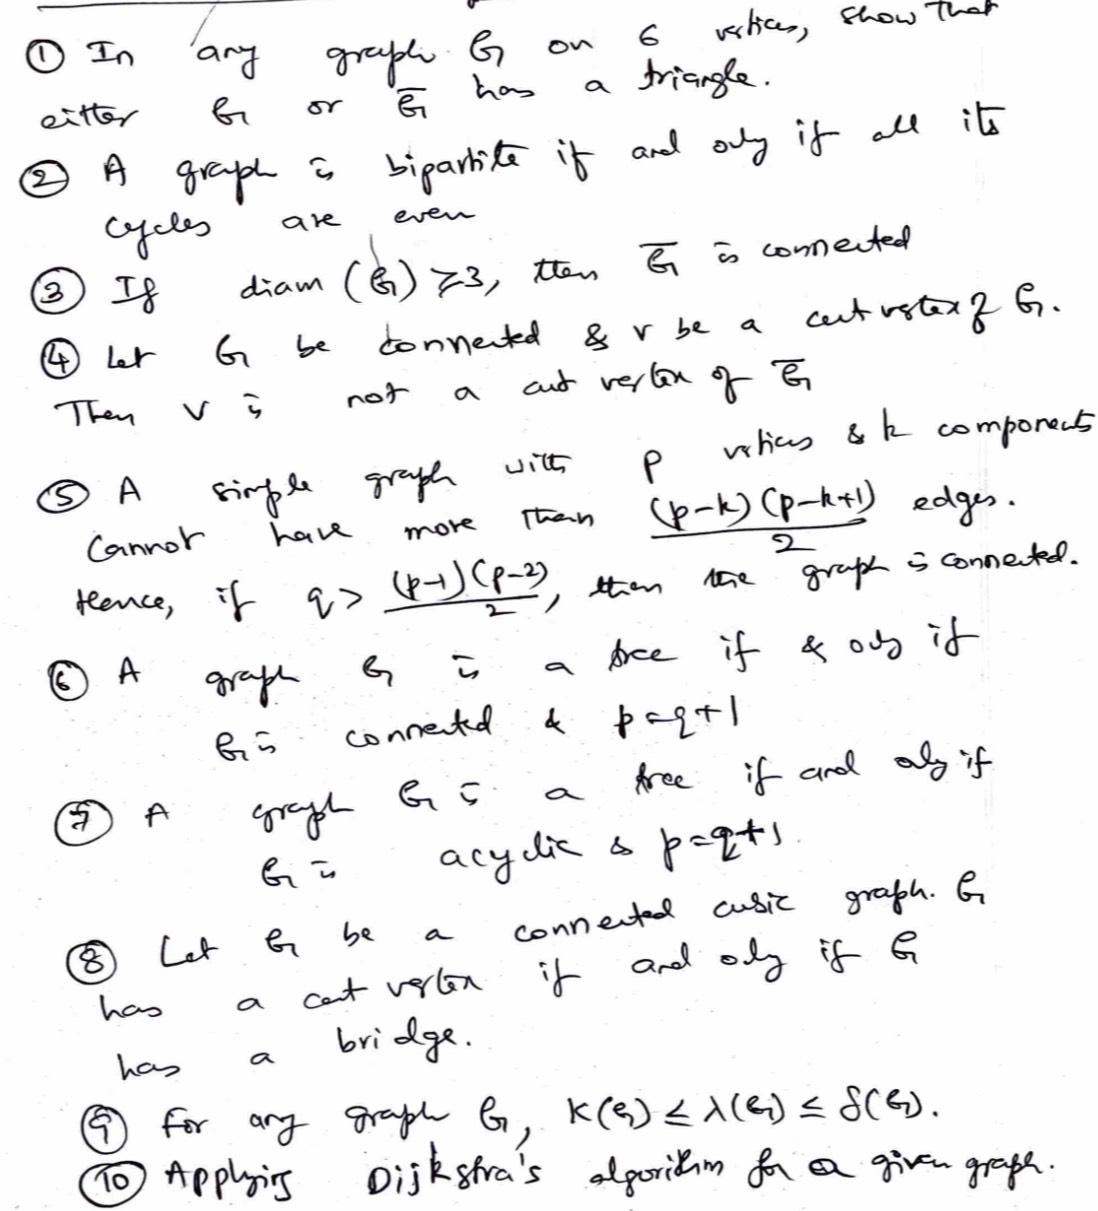 ① In any graph G on 6 vertices, show that
either G or G̅ has a triangle.
② A graph is bipartite if and only if all its
cycles are even
③ If diam (G) ≥3, then G̅ is connected
④ Let G be connected & v be a cut vertex of G.
Then v is not a cut vertex of G̅
⑤ A simple graph with p vertices & k components
cannot have more than (p-k)(p-k+1)/2 edges.
Hence, if q > (p-1)(p-2)/2, then the graph is connected.
⑥ A graph G is a tree if & only if
G is connected & p=q+1
⑦ A graph G is a tree if and only if
G is acyclic & p=q+1.
⑧ Let G be a connected cubic graph. G
has a cut vertex if and only if G
has a bridge.
⑨ For any graph G, K(G) ≤ λ(G) ≤ δ(G).
⑩ Applying Dijkstra's algorithm for a given graph.